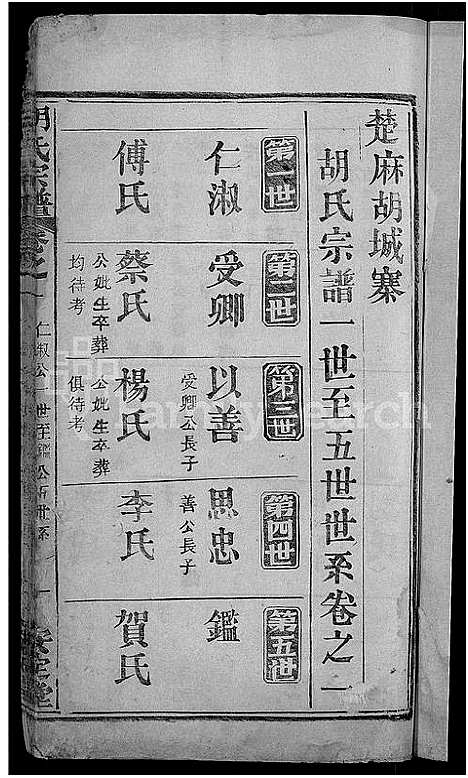 楚麻胡城寨
胡氏宗譜一世至五世世系卷之一
第一世
仁淑
傅氏
第二世
受卿
蔡氏
公妣生卒葬
均待考
第三世
以善
受卿公長子
楊氏
公妣生卒葬
俱待考
第四世
思忠
善公長子
李氏
第五世
鑑
賀氏
胡氏宗譜
卷之一
仁淑公一世至鑑公五世世系
一
安定堂
FamilySearch